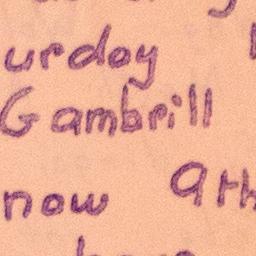 urday
Gambrill
now 9th